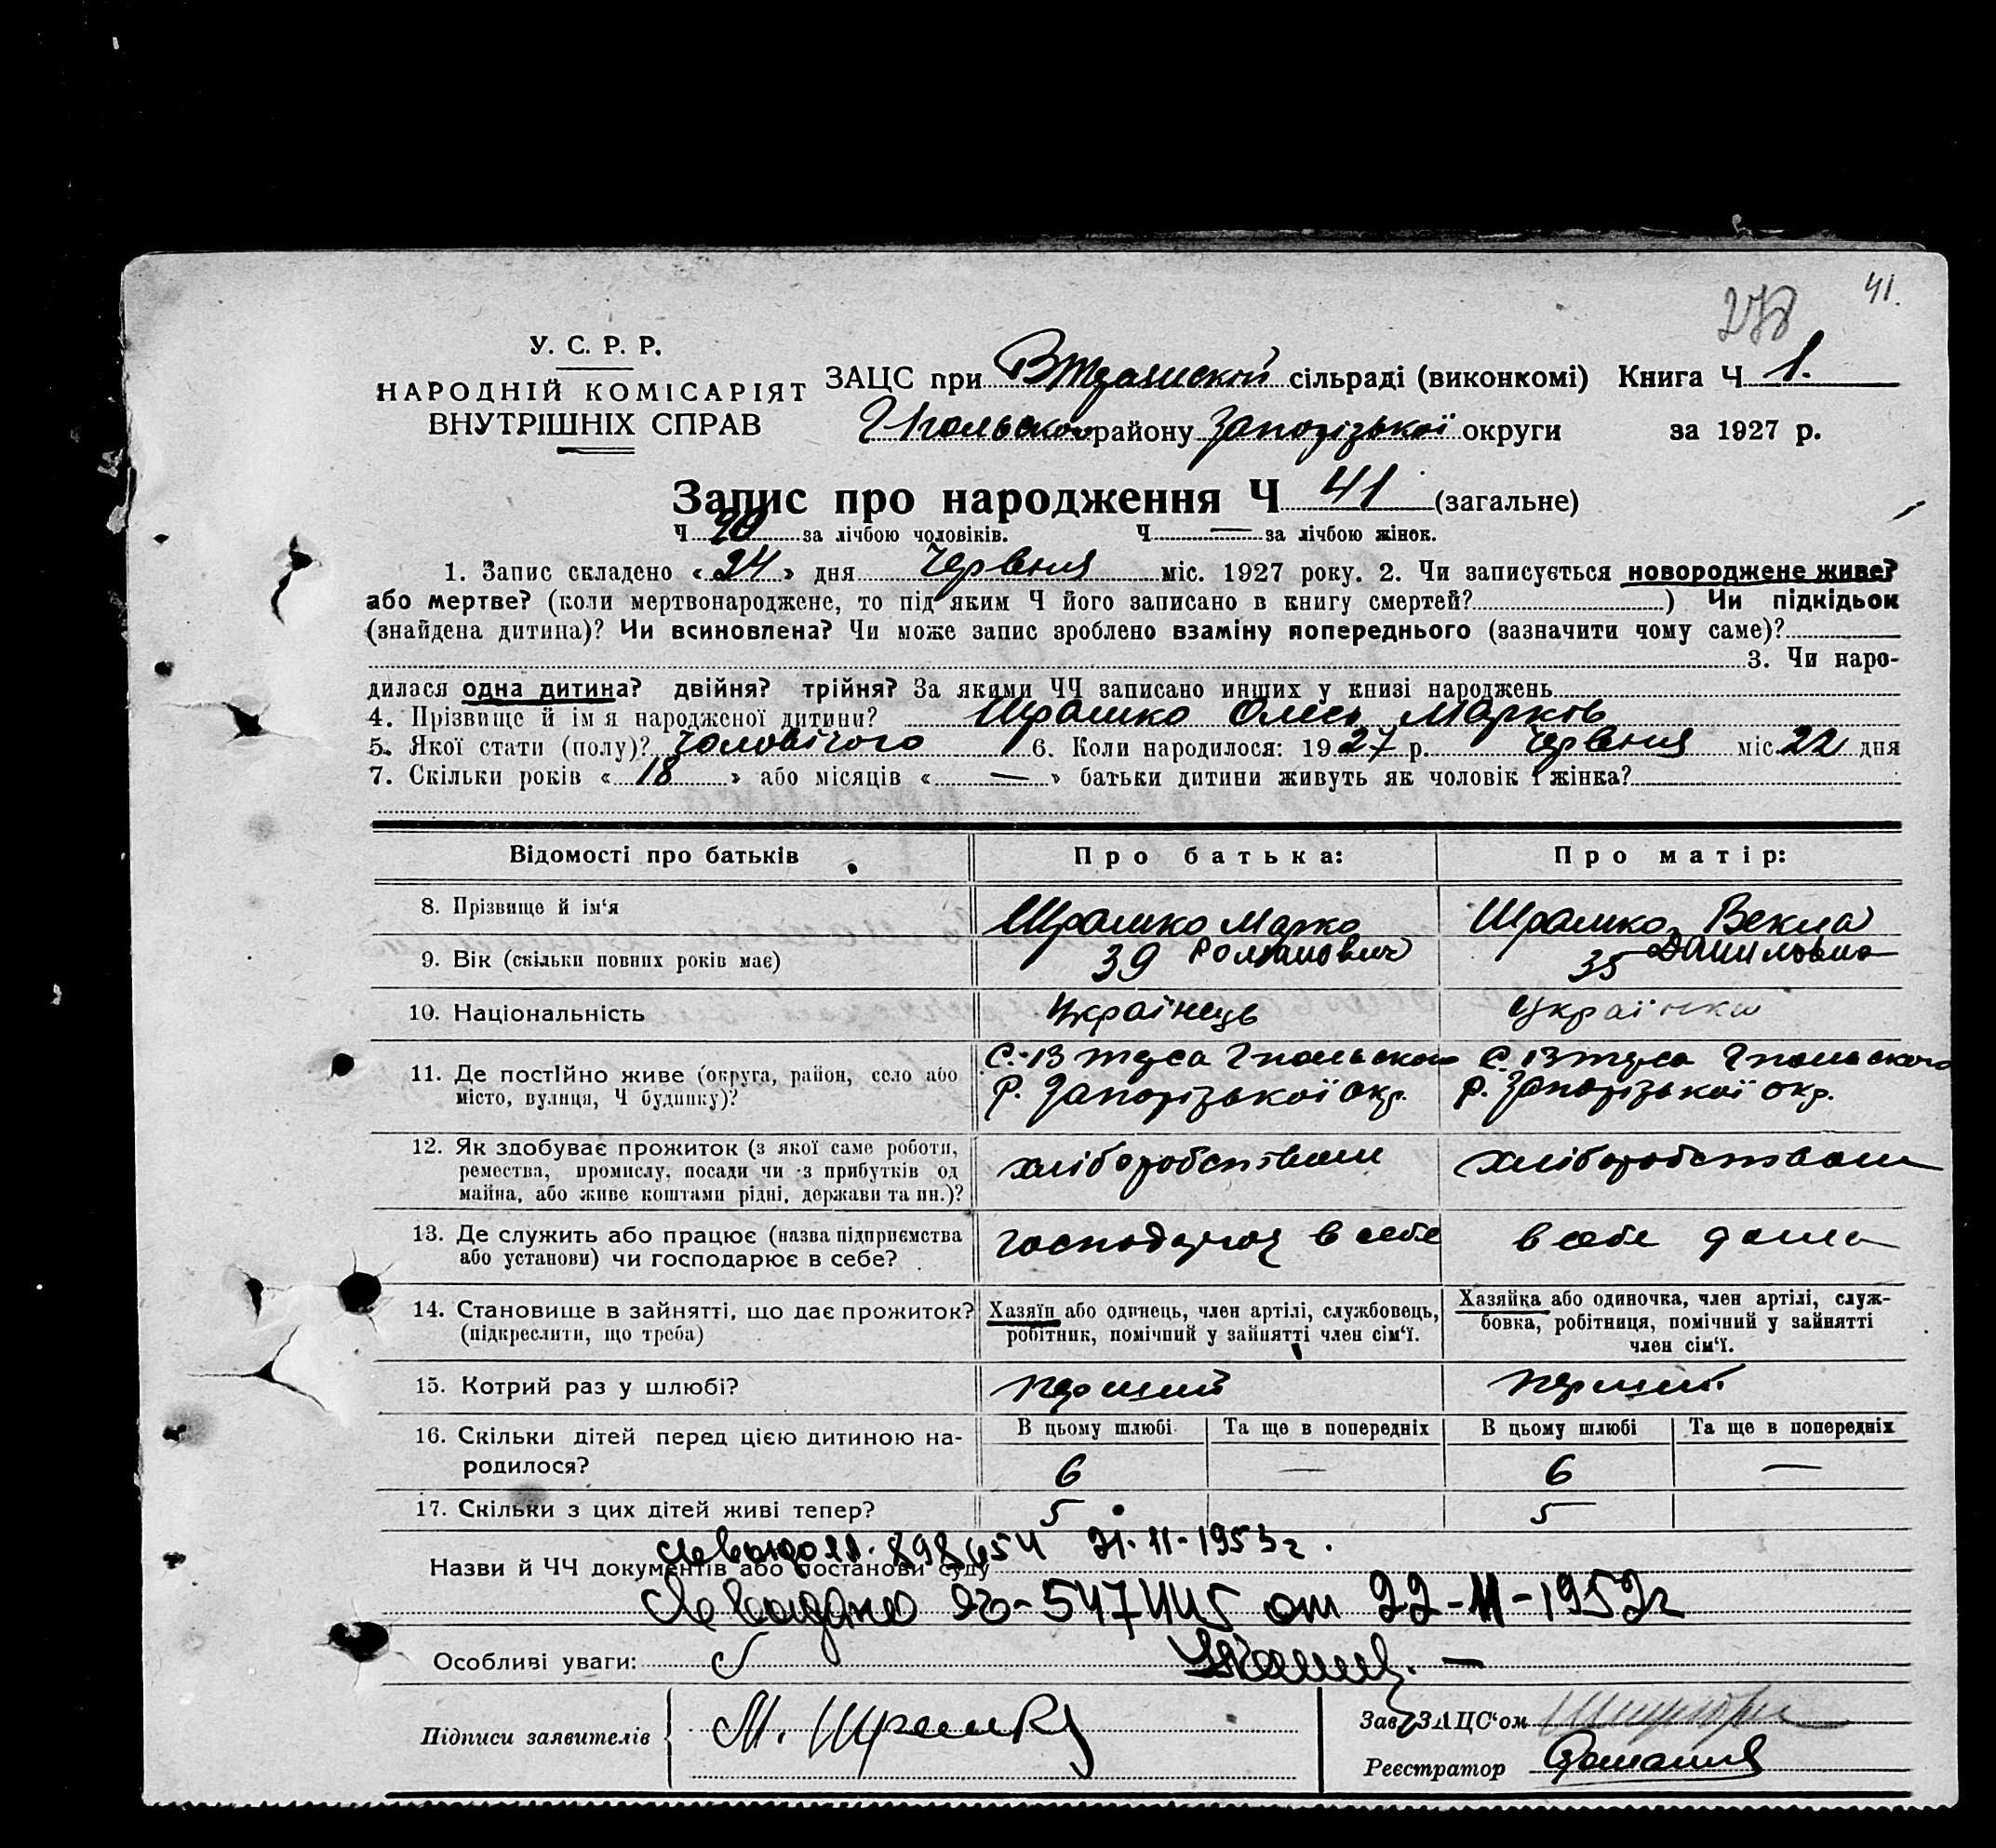 41.
278
У. С. Р. Р.
НАРОДНІЙ КОМІСАРІЯТ
ВНУТРІШНІХ СПРАВ
ЗАЦС при сільраді (виконкомі) Книга Ч 1.
району Запорізької округи за 1927 р.
Запис про народження Ч 41 (загальне)
Ч 20 за лічбою чоловіків. Ч — за лічбою жінок.
1. Запис складено « 24 » дня Червня міс. 1927 року. 2. Чи записується новороджене живе?
або мертве? (коли мертвонароджене, то під яким Ч його записано в книгу смертей? ) Чи підкідьок
(знайдена дитина)? Чи всиновлена? Чи може запис зроблено взаміну попереднього (зазначити чому саме)?
3. Чи наро-
дилася одна дитина? двійня? трійня? За якими ЧЧ записано инших у книзі народжень
4. Прізвище й ім я народженої дитини? Шрамко Олесь Марків
5. Якої стати (полу)? чоловічого 6. Коли народилося: 1927 р. Червня міс. 22 дня
7. Скільки років « 18 » або місяців « — » батьки дитини живуть як чоловік і жінка?
Відомості про батьків Про батька: Про матір:
8. Прізвище й ім‘я Шрамко Марко Романович Шрамко Векла Данильовна
9. Вік (скільки повних років має) 39 35
10. Національність Українець Українка
11. Де постійно живе (округа, район, село або
місто, вулиця, Ч будинку)?
Р. Запорізької окр. Р. Запорізької окр.
12. Як здобуває прожиток (з якої саме роботи,
ремества, промислу, посади чи з прибутків од
майна, або живе коштами рідні, держави та ин.)?
хліборобством хліборобством
13. Де служить або працює (назва підприємства
або установи) чи господарює в себе?
господарює в себе в себе дома
14. Становище в зайнятті, що дає прожиток?
(підкреслити, що треба)
Хазяїн або одинець, член артілі, службовець,
робітник, помічний у зайнятті член сім‘ї.
Хазяйка або одиночка, член артілі, служ-
бовка, робітниця, помічний у зайнятті
член сім‘ї.
15. Котрий раз у шлюбі? перший перший
16. Скільки дітей перед цією дитиною на-
родилося?
В цьому шлюбі Та ще в попередніх В цьому шлюбі Та ще в попередніх
6 — 6 —
17. Скільки з цих дітей живі тепер? 5 5
21-11-1953 г.
Назви й ЧЧ документів або постанови суду
547445 от 22-11-1952г
Особливі уваги:
Підписи заявителів М. Шрамко
Зав. ЗАЦС‘ом
Реєстратор